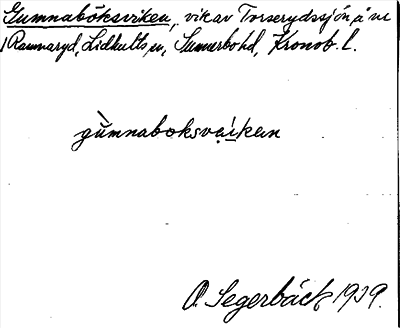 Gumnaböksviken, vik av Torserydssjön, å nr
1 Ramnaryd, Lidhults sn, Sunnerbo hd, Kronob. l.
gùmnaboksvaíken
O. Segerbäck 1939.